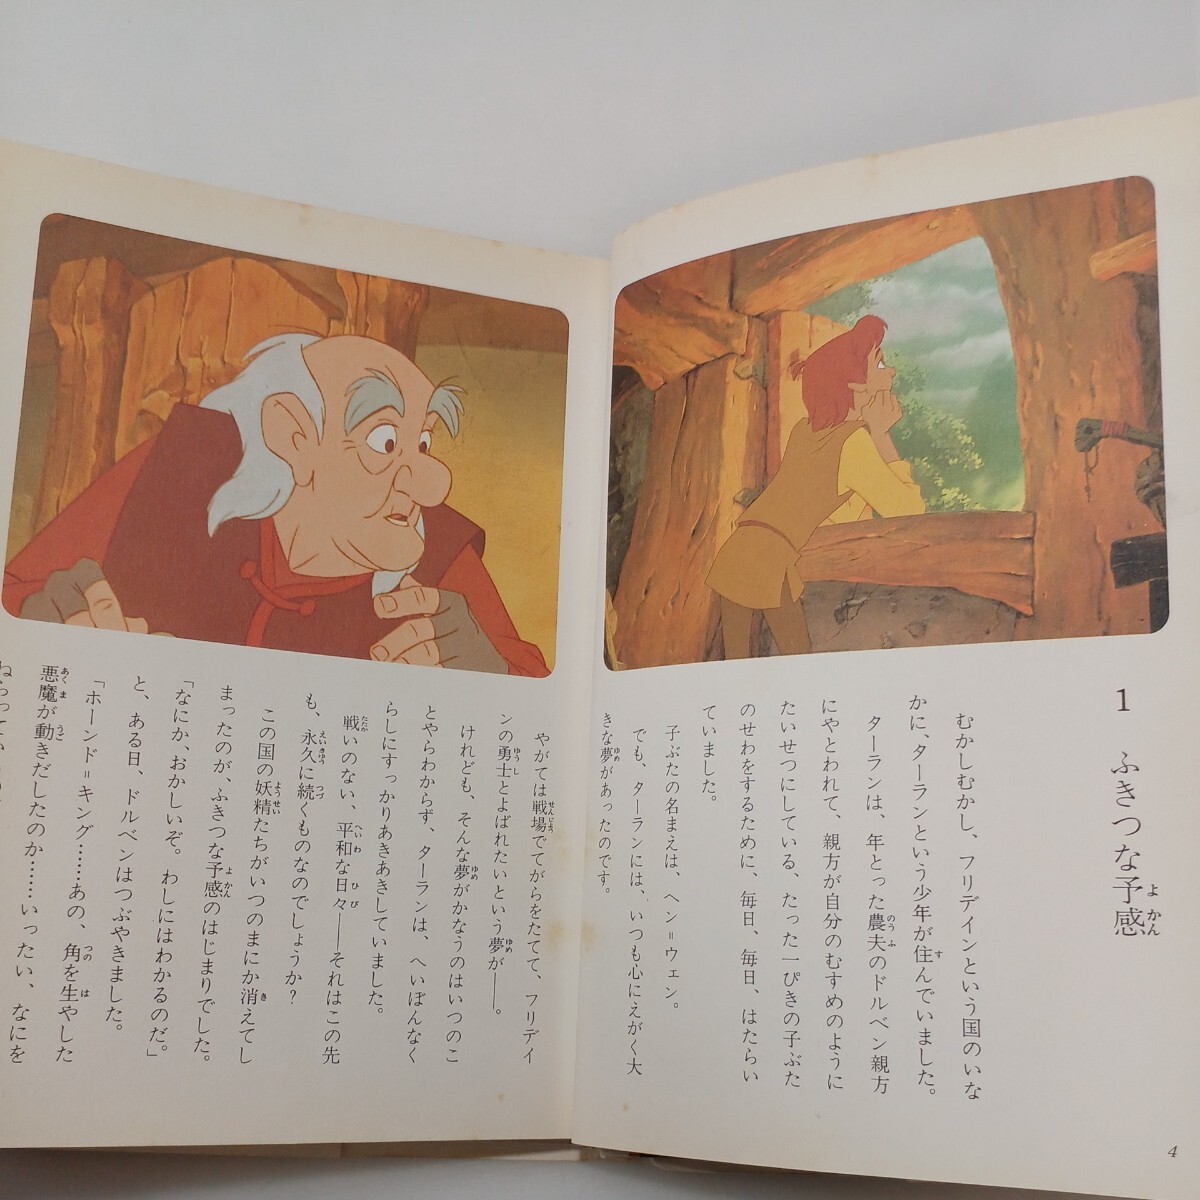 1 ふきつな予感
むかしむかし、フリデインという国のいな
かに、ターランという少年が住んでいました。
ターランは、年とった農夫のドルベン親方
にやとわれて、親方が自分のむすめのように
たいせつにしている、たった一ぴきの子ぶた
のせわをするために、毎日、毎日、はたらい
ていました。
子ぶたの名まえは、ヘン＝ウェン。
でも、ターランには、いつも心にえがく大
きな夢があったのです。
4
やがては戦場でてがらをたてて、フリデイ
ンの勇士とよばれたいという夢が――。
けれども、そんな夢がかなうのはいつのこ
とやらわからず、ターランは、へいぼんなく
らしにすっかりあきあきしていました。
戦いのない、平和な日々――それはこの先
も、永久に続くものなのでしょうか？
この国の妖精たちがいつのまにか消えてし
まったのが、ふきつな予感のはじまりでした。
「なにか、おかしいぞ。わしにはわかるのだ。」
と、ある日、ドルベンはつぶやきました。
「ホーンド＝キング……あの、角を生やした
悪魔が動きだしたのか……いったい、なにを
ねらって